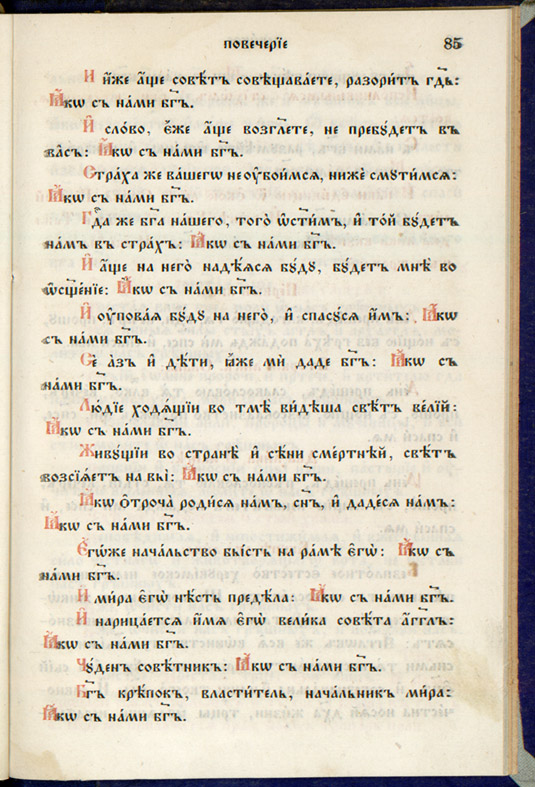 повечерїе 85
И҆ и҆́же а҆́ще совѣ́тъ совѣщава́ете, разори́тъ гд҇ь:
Ꙗ҆́кѡ съ на́ми бг҃ъ.
И҆ сло́во, є҆́же а҆́ще возгл҃ете, не пребꙋ́детъ въ
ва́съ: Ꙗ҆́кѡ съ на́ми бг҃ъ.
Стра́ха же ва́шегѡ не ᲂу҆бои́мсѧ, нижѐ смꙋти́мсѧ:
Ꙗ҆́кѡ съ на́ми бг҃ъ.
Гд҇а же бг҃а на́шего, того̀ ѡ҆ст҃и́мъ, и҆ то́й бꙋ́детъ
на́мъ въ стра́хъ: Ꙗ҆́кѡ съ на́ми бг҃ъ.
И҆ а҆́ще на него̀ надѣ́ѧсѧ бꙋ́дꙋ, бꙋ́детъ мнѣ̀ во
ѡ҆сщ҃е́нїе: Ꙗ҆́кѡ съ на́ми бг҃ъ.
И҆ ᲂу҆пова́ѧ бꙋ́дꙋ на него̀, и҆ спасꙋ́сѧ и҆́мъ: Ꙗ҆́кѡ
съ на́ми бг҃ъ.
Сѐ а҆́зъ и҆ дѣ́ти, ꙗ҆̀же мѝ дадѐ бг҃ъ: Ꙗ҆́кѡ съ
на́ми бг҃ъ.
Лю́дїе ходѧ́щїи во тмѣ̀ ви́дѣша свѣ́тъ ве́лїй:
Ꙗ҆́кѡ съ на́ми бг҃ъ.
Живꙋ́щїи во странѣ̀ и҆ сѣ́ни сме́ртнѣй, свѣ́тъ
возсїѧ́етъ на вы̀: Ꙗ҆́кѡ съ на́ми бг҃ъ.
Ꙗ҆́кѡ ѻ҆троча̀ роди́сѧ на́мъ, сн҃ъ, и҆ даде́сѧ на́мъ:
Ꙗ҆́кѡ съ на́ми бг҃ъ.
Є҆гѡ́же нача́льство бы́сть на ра́мѣ є҆гѡ̀: Ꙗ҆́кѡ съ
на́ми бг҃ъ.
И҆ ми́ра є҆гѡ̀ нѣ́сть предѣ́ла: Ꙗ҆́кѡ съ на́ми бг҃ъ.
И҆ нарица́етсѧ и҆́мѧ є҆гѡ̀ вели́ка совѣ́та а҆́гг҃лъ:
Ꙗ҆́кѡ съ на́ми бг҃ъ.
Чꙋ́денъ совѣ́тникъ: Ꙗ҆́кѡ съ на́ми бг҃ъ.
Бг҃ъ крѣ́покъ, власти́тель, нача́льникъ ми́ра:
Ꙗ҆́кѡ съ на́ми бг҃ъ.